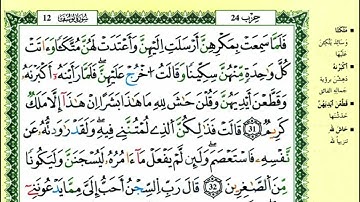 12 سورة يوسف حزب 24
فَلَمَّا سَمِعَتْ بِمَكْرِهِنَّ أَرْسَلَتْ إِلَيْهِنَّ وَأَعْتَدَتْ لَهُنَّ مُتَّكَـًٔا وَءَاتَتْ
كُلَّ وَٰحِدَةٍ مِّنْهُنَّ سِكِّينًا وَقَالَتِ اخْرُجْ عَلَيْهِنَّ فَلَمَّا رَأَيْنَهُۥ أَكْبَرْنَهُۥ
وَقَطَّعْنَ أَيْدِيَهُنَّ وَقُلْنَ حَٰشَ لِلهِ مَا هَٰذَا بَشَرًا إِنْ هَٰذَا إِلَّا مَلَكٌ
كَرِيمٌ 31 قَالَتْ فَذَٰلِكُنَّ الَّذِي لُمْتُنَّنِي فِيهِ وَلَقَدْ رَٰوَدتُّهُۥ عَن
نَّفْسِهِۦ فَاسْتَعْصَمَ وَلَئِن لَّمْ يَفْعَلْ مَا ءَامُرُهُۥ لَيُسْجَنَنَّ وَلَيَكُونًا
مِّنَ الصَّٰغِرِينَ 32 قَالَ رَبِّ السِّجْنُ أَحَبُّ إِلَيَّ مِمَّا يَدْعُونَنِي
مُتَّكَـًٔا
وسائد يتّكئن
عليها
أَكْبَرْنَهُ
دهشن برؤية
جماله الفائق
قَطَّعْنَ أَيْدِيَهُنَّ
خدشنها
حَاشَ لِلهِ
تنزيهًا لله